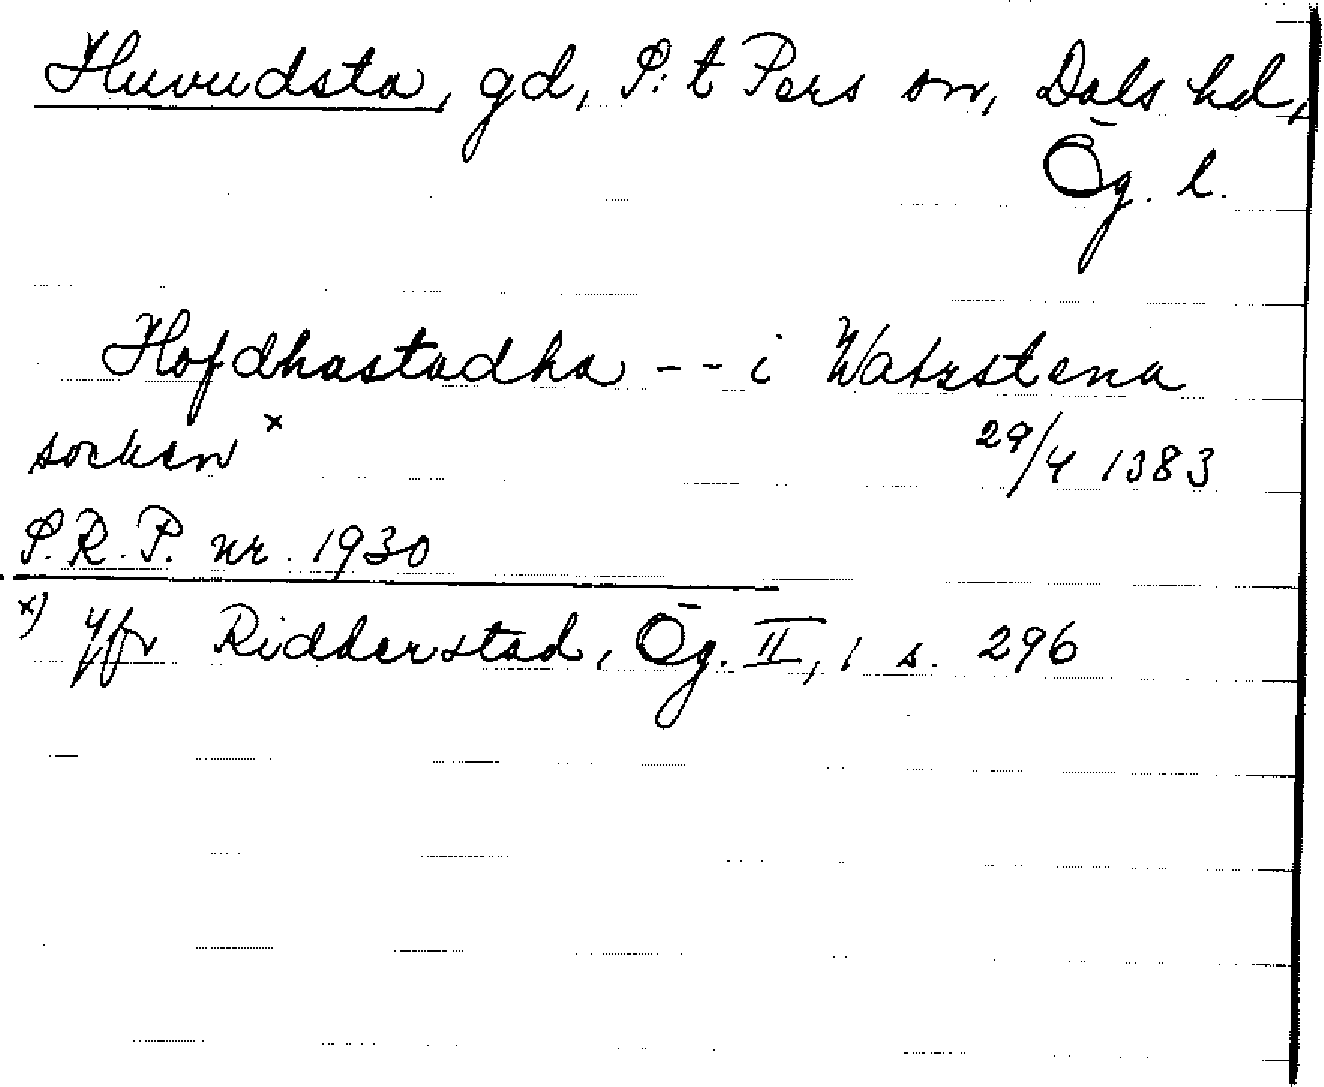 Huvudsta, gd, S:t Pers sn, Dals hd,
Ög. l.
Hofdhastadha -- i Watzstena
socken x
29/4 1383
S.R.P. nr. 1930
x) Jfr Ridderstad, Ög. II, 1 s. 296